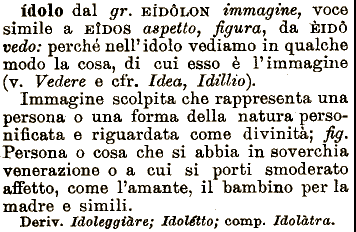 ídolo dal gr. EÍDÔLON immagine, voce
simile a EÎDOS aspetto, figura, da ÈIDÔ
vedo: perché nell'idolo vediamo in qualche
modo la cosa, di cui esso è l'immagine
(v. Vedere e cfr. Idea, Idillio).
Immagine scolpita che rappresenta una
persona o una forma della natura perso-
nificata e riguardata come divinità; fig.
Persona o cosa che si abbia in soverchia
venerazione o a cui si porti smoderato
affetto, come l'amante, il bambino per la
madre e simili.
Deriv. Idoleggiàre; Idolétto; comp. Idolàtra.